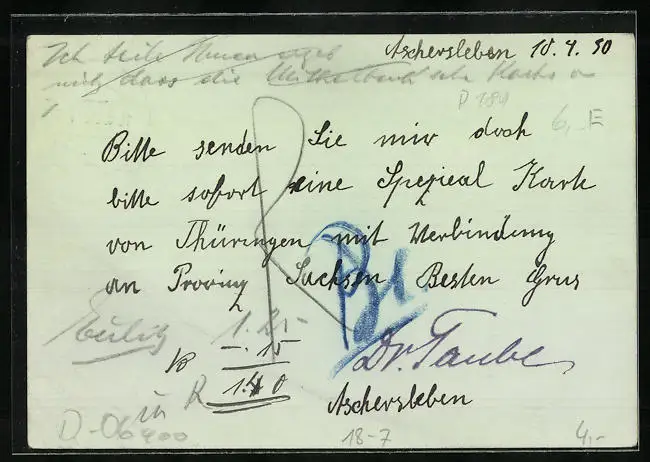 Ich teile Ihnen ergeb
mit, dass die Mittelbach'sche Karte
Aschersleben 18.4.30
6,- E
Bitte senden Sie mir doch
bitte sofort eine Spezieal Karte
von Thüringen mit Verbindung
an Provinz Sachsen Besten Grus
Eilig
1.25
-.15
1.40
Dr. Taube
Aschersleben
D-06400
18-7
4,-